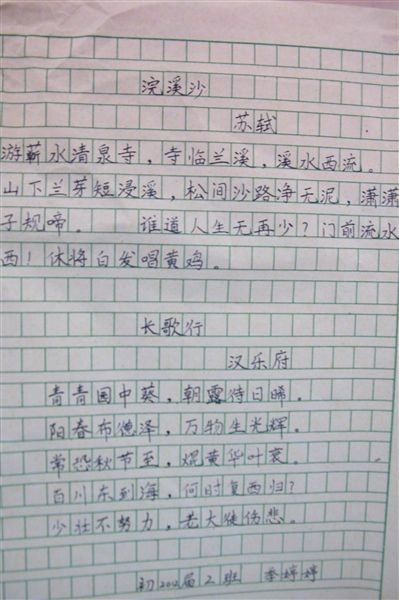 浣溪沙
苏轼
游蕲水清泉寺，寺临兰溪，溪水西流。
山下兰芽短浸溪，松间沙路净无泥，潇潇
子规啼。 谁道人生无再少？门前流水
西！休将白发唱黄鸡。
长歌行
汉乐府
青青园中葵，朝露待日晞。
阳春布德泽，万物生光辉。
常恐秋节至，焜黄华叶衰。
百川东到海，何时复西归？
少壮不努力，老大徒伤悲。
初2012届2班 李婷婷